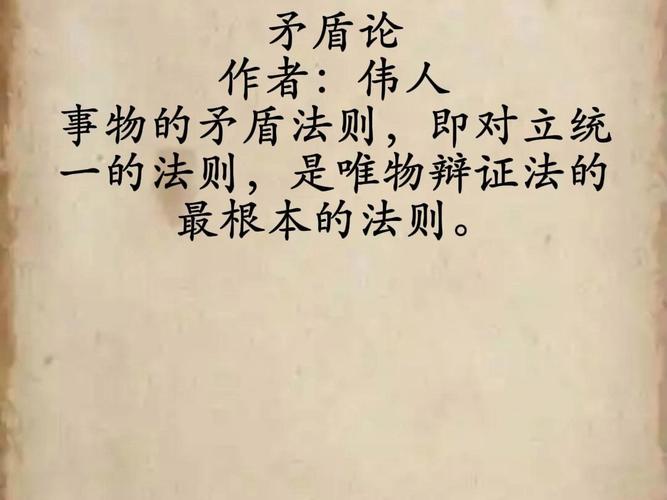 矛盾论
作者：伟人
事物的矛盾法则，即对立统
一的法则，是唯物辩证法的
最根本的法则。